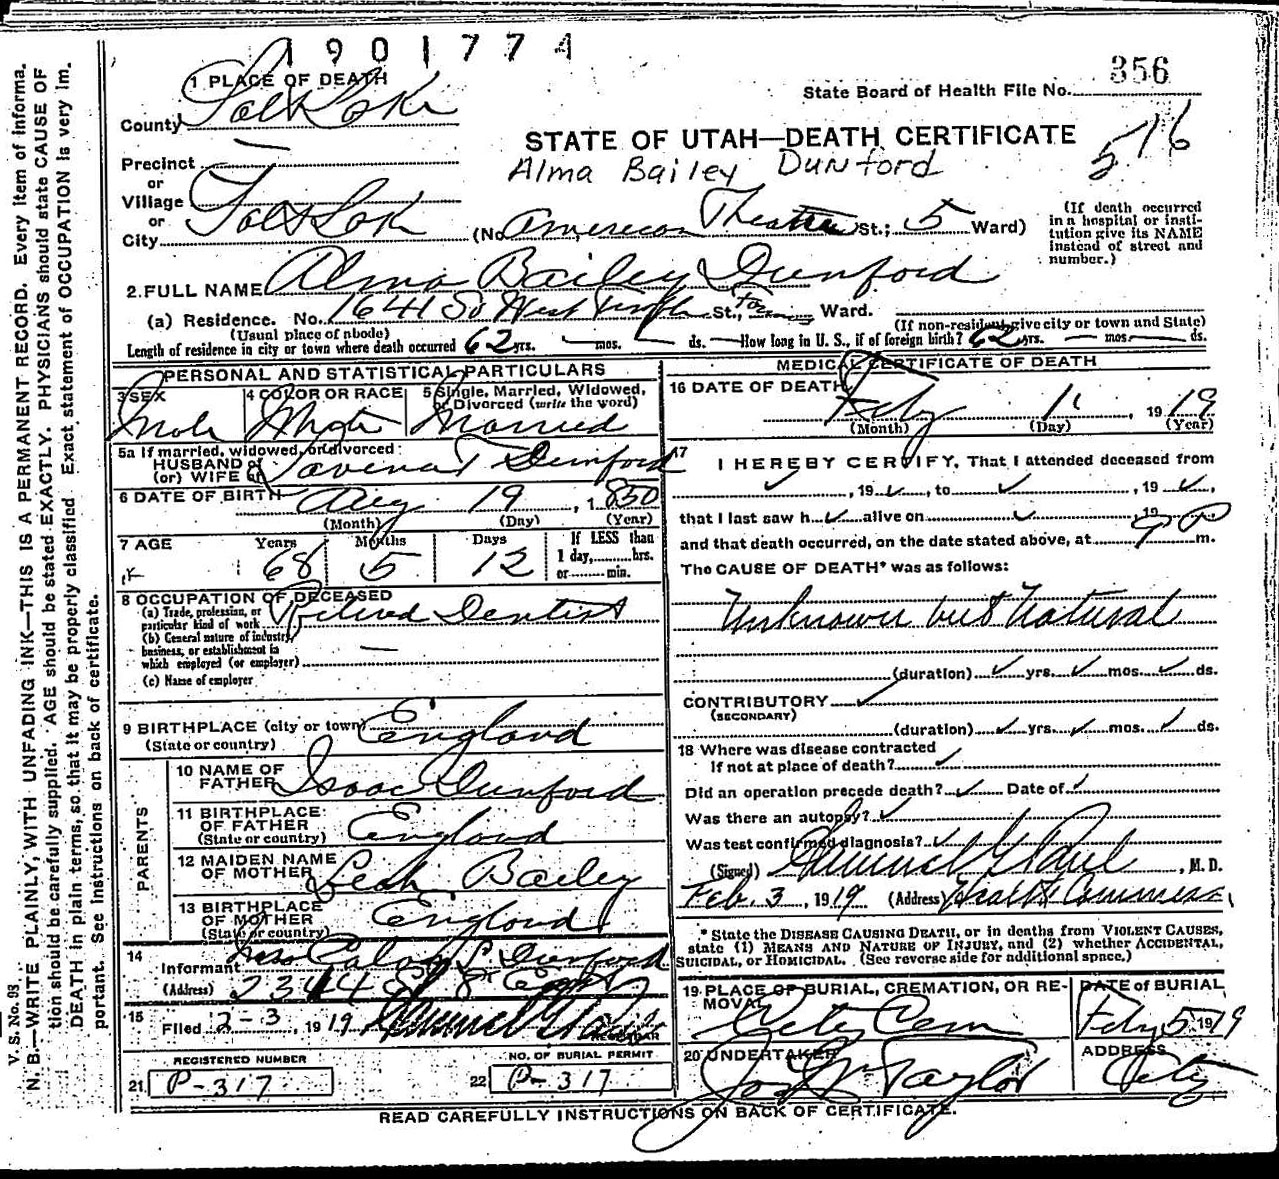 1901774
356
State Board of Health File No.
1 PLACE OF DEATH
County Salt Lake
STATE OF UTAH—DEATH CERTIFICATE
516
Alma Bailey Dunford
Precinct
or
Village
or
City Salt Lake (No American Theatre St.; 5 Ward)
(If death occurred
in a hospital or insti-
tution give its NAME
instead of street and
number.)
2. FULL NAME Alma Bailey Dunford
(a) Residence. No. 1641 So West Temple St., Ward.
(Usual place of abode) (If non-resident give city or town and State)
Length of residence in city or town where death occurred 62 yrs. — mos. — ds. How long in U. S., if of foreign birth? 62 yrs. — mos. — ds.
PERSONAL AND STATISTICAL PARTICULARS
3 SEX 4 COLOR OR RACE 5 Single, Married, Widowed,
or Divorced (write the word)
Male White Married
5a If married, widowed, or divorced:
HUSBAND of
(or) WIFE of Lavena T Dunford
6 DATE OF BIRTH Aug 19, 1850
(Month) (Day) (Year)
7 AGE Years Months Days If LESS than
1 day, hrs.
or min.
68 5 12
8 OCCUPATION OF DECEASED
(a) Trade, profession, or
particular kind of work Retired Dentist
(b) General nature of industry,
business, or establishment in
which employed (or employer) —
(c) Name of employer
9 BIRTHPLACE (city or town) England
(State or country)
PARENTS
10 NAME OF
FATHER Isaac Dunford
11 BIRTHPLACE
OF FATHER England
(State or country)
12 MAIDEN NAME
OF MOTHER Leah Bailey
13 BIRTHPLACE
OF MOTHER England
(State or country)
14
Informant Mrs Dunford
(Address) 8 East
15
Filed 2-3, 1919 Samuel G Paul
REGISTRAR
REGISTERED NUMBER NO. OF BURIAL PERMIT
21 P-317 22 P-317
MEDICAL CERTIFICATE OF DEATH
16 DATE OF DEATH
Feby 1, 1919
(Month) (Day) (Year)
17
I HEREBY CERTIFY, That I attended deceased from
, 19 , to , 19 ,
that I last saw h alive on , 19
and that death occurred, on the date stated above, at 9 P m.
The CAUSE OF DEATH* was as follows:
Unknown but Natural
(duration) yrs. mos. ds.
CONTRIBUTORY
(SECONDARY)
(duration) yrs. mos. ds.
18 Where was disease contracted
If not at place of death?
Did an operation precede death? Date of
Was there an autopsy?
Was test confirmed diagnosis?
(Signed) Samuel G Paul, M. D.
Feb. 3, 1919 (Address) Health Commiss.
* State the DISEASE CAUSING DEATH, or in deaths from VIOLENT CAUSES,
state (1) MEANS AND NATURE OF INJURY, and (2) whether ACCIDENTAL,
SUICIDAL, or HOMICIDAL. (See reverse side for additional space.)
19 PLACE OF BURIAL, CREMATION, OR RE-
MOVAL DATE OF BURIAL
City Cem Feby 5 1919
20 UNDERTAKER ADDRESS
Jos Wm Taylor City
READ CAREFULLY INSTRUCTIONS ON BACK OF CERTIFICATE.
V. S. No. 93
N. B.—WRITE PLAINLY, WITH UNFADING INK—THIS IS A PERMANENT RECORD. Every item of informa-
tion should be carefully supplied. AGE should be stated EXACTLY. PHYSICIANS should state CAUSE OF
DEATH in plain terms, so that it may be properly classified. Exact statement of OCCUPATION is very im-
portant. See instructions on back of certificate.